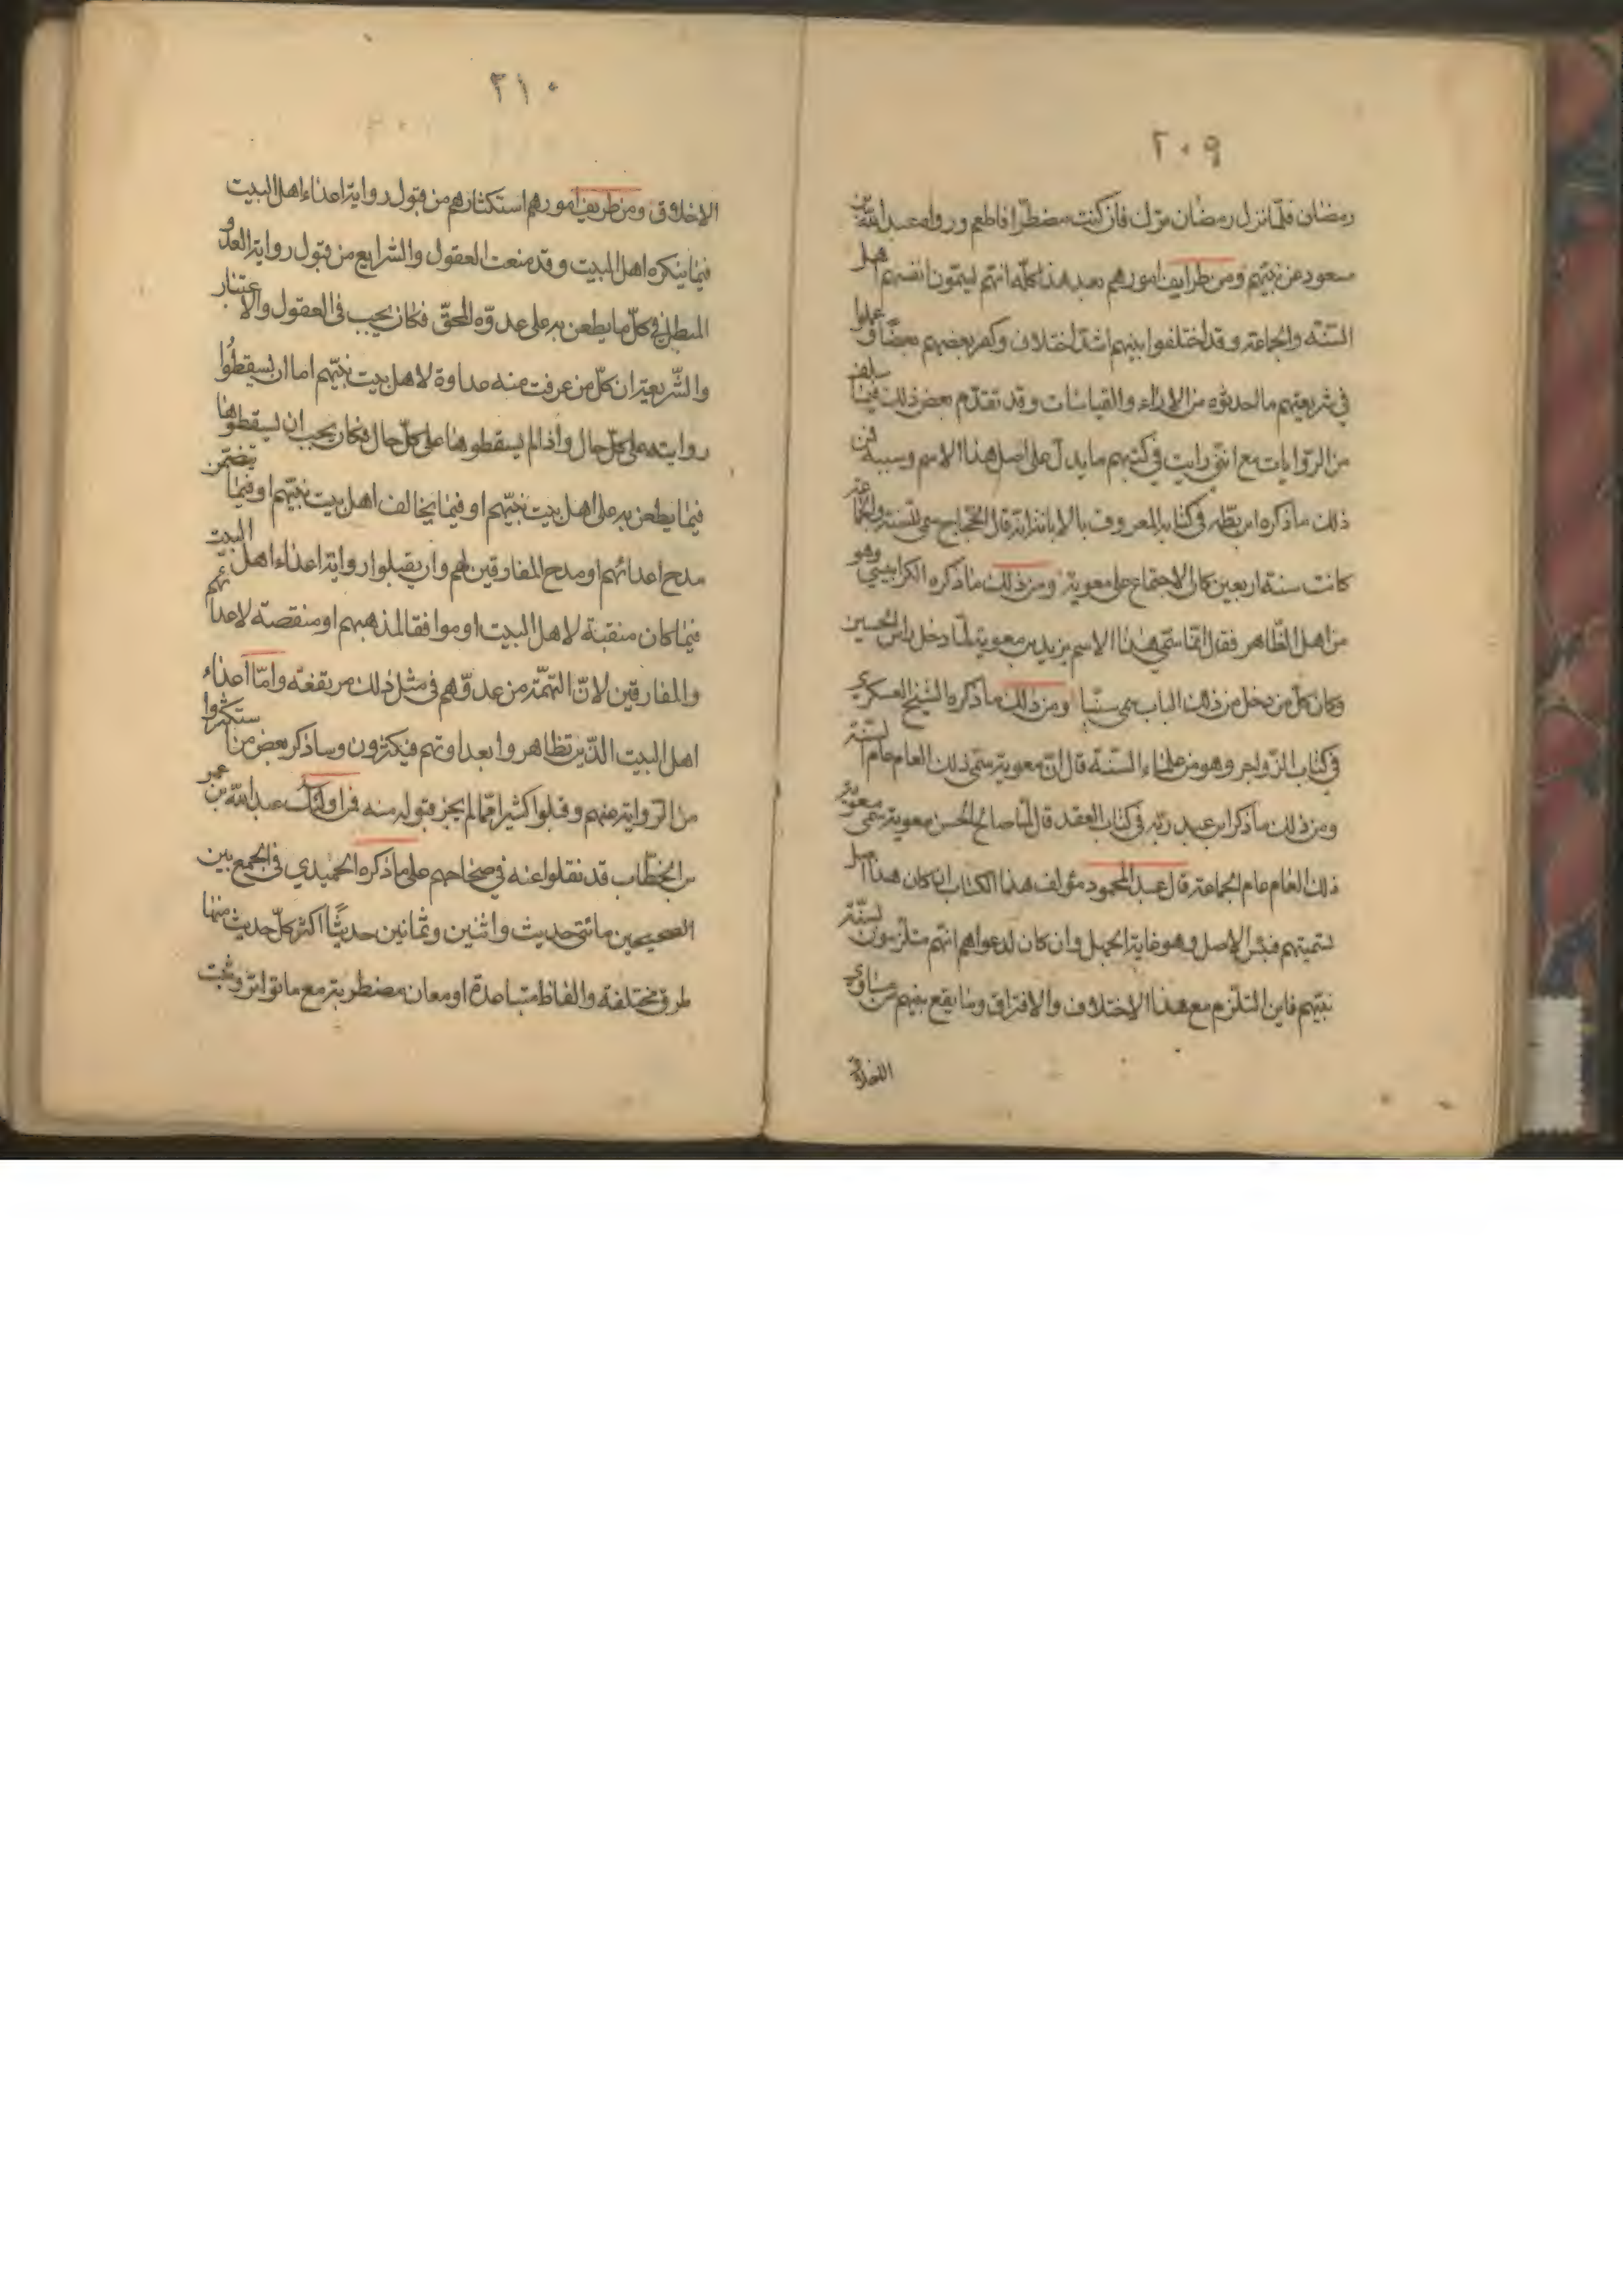 ٢٠٩
رمضان فلمّا نزل رمضان ترك فان كنت مضطرا فاطعم ورواه عبد الله بن
مسعود عن نبيّهم ومن طرايف امورهم بعد هذا كلّه انهم ليسمّون انفسهم اهل
السّنّه والجماعة وقد اختلفوا بينهم اشدّ اختلاف وكفر بعضهم بعضًا وعملوا
في شريعتهم ما احدثوه من الاراء والقياسات وقد تقدّم بعض ذلك فيما سلف
من الرّوايات مع انّني رايت في كتبهم ما يدلّ على اصل هذا الاسم وسببه فمن
ذلك ما ذكره ابن بطّه في كتابه المعروف بالابانة انه قال الحجّاج سمى السنة والجماعة
كانت سنة اربعين كان الاجتماع على معوية ومن ذلك ما ذكره الكرابيسي وهو
من اهل الظّاهر فقال انّما سمّى هذا الاسم يزيد بن معوية لمّا دخل راس الحسين
وكان كل من دخل من ذلك الباب سمى سنّيا ومن ذلك ما ذكره الشيخ العسكري
في كتاب الزّواجر وهو من علماء السّنّة قال انّ معوية سمّى ذلك العام عام السّنّة
ومن ذلك ما ذكر ابن عبد ربّه في كتاب العقد قال لمّا صالح الحسن معوية سمّى معوية
ذلك العام عام الجماعة قال عبد المحمود مؤلف هذا الكتاب ان كان هذا اصل
تسميتهم فبئس الاصل وهو غاية الجهل وان كان لدعواهم انهم متلزمون لسنّة
نبيّهم فاين التلزم مع هذا الاختلاف والافتراق وما يقع بينهم من مساوى
الاخلاق
٢١٠
الاخلاق ومن طريف امورهم استكثارهم من قبول رواية اعداء اهل البيت
فيما ينكره اهل البيت وقد منعت العقول والشرايع من قبول رواية العدوّ
المبطل في كلّ ما يطعن به على عدوّه المحقّ فكان يجب في العقول والاعتبار
والشّريعة ان كلّ من عرفت منه عداوة لاهل بيت نبيّهم اما ان يسقطوا
روايته على كلّ حال واذا لم يسقطوها على كلّ حال فكان يجب ان يسقطوها
فيما يطعن به على اهل بيت نبيّهم او فيما يخالف اهل بيت نبيّهم او فيما يتضمّن
مدح اعدائهم او مدح المفارقين لهم وان يقبلوا رواية اعداء اهل البيت
فيما كان منقبة لاهل البيت او موافقا لمذهبهم او منقصة لاعدائهم
والمفارقين لانّ التهمة من عدوّهم في مثل ذلك مرتفعة وامّا اعداء
اهل البيت الّذين تظاهروا بعداوتهم فيكثرون وساذكر بعض من استكثروا
من الرّواية عنهم وقبلوا كثيرا ممّا لم يجز قبوله منه فمن اولئك عبد الله بن عمر
بن الخطّاب قد نقلوا عنه في صحاحهم على ما ذكره الحميدي في الجمع بين
الصحيحين مائتي حديث واثنين وثمانين حديثًا اكثر كلّ حديث منها
طرق مختلفة والفاظ متباعدة او معان مضطربة مع ما تواتر وثبت